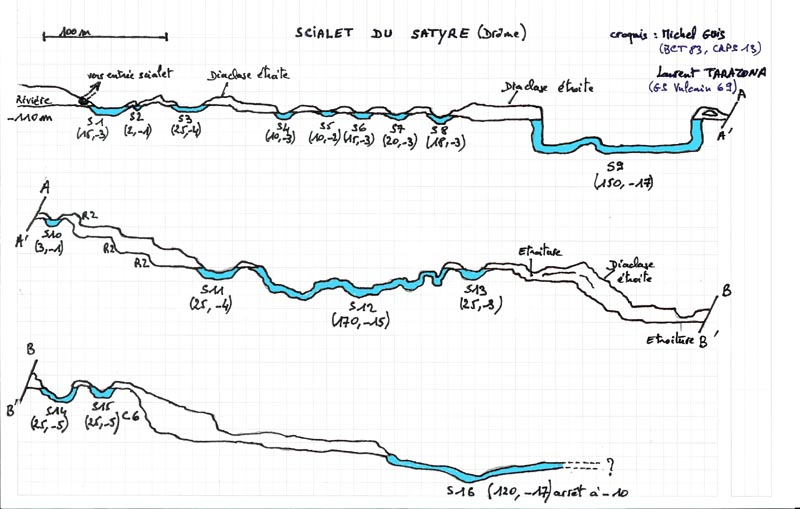 100 m
SCIALET DU SATYRE (Drôme)
croquis : Michel GUIS
(BCT 83, CAPS 13)
Laurent TARAZONA
(GS Vulcain 69)
vers entrée scialet
Diaclase étroite
Diaclase étroite
Rivière
-110m
S1
(15,-3)
S2
(2,-1)
S3
(25,-4)
S4
(10,-3)
S5
(10,-3)
S6
(15,-3)
S7
(20,-3)
S8
(18,-3)
S9
(150,-17)
A
A'
A
A'
S10
(3,-1)
R2
R2
R2
S11
(25,-4)
S12
(170,-15)
S13
(25,-8)
Etroiture
Diaclase
étroite
Etroiture
B
B'
B
B'
S14
(25,-5)
S15
(25,-5)
C6
S16 (120,-17) arrêt à -10
?